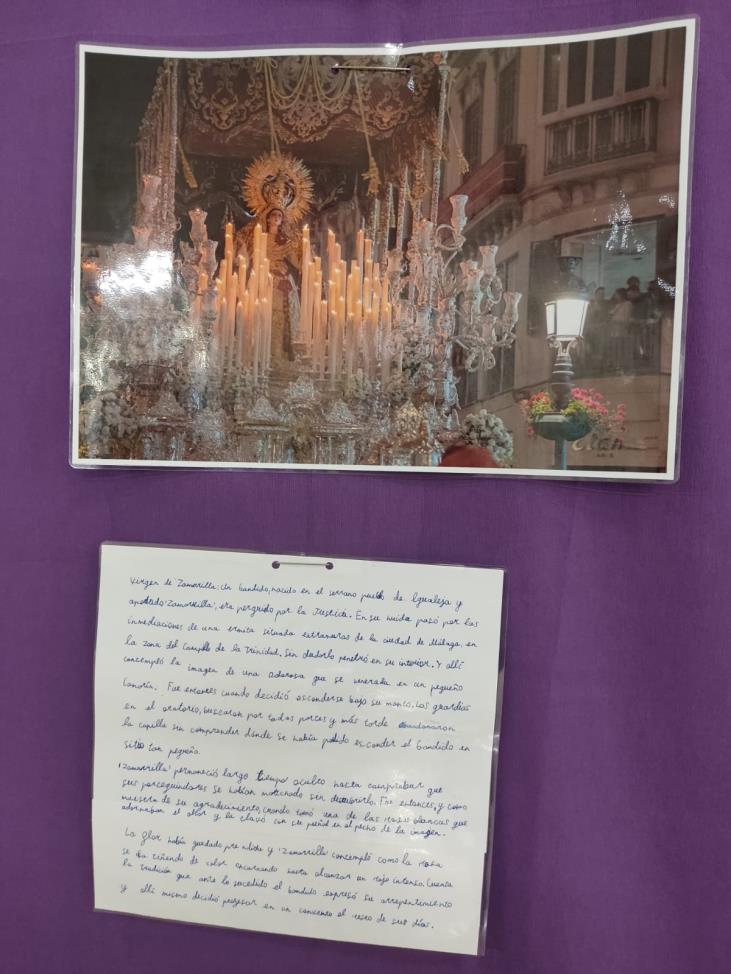 Virgen de Zamarrilla: Un bandido, nacido en el serrano pueblo de Igualeja y
apodado 'Zamarrilla', era perseguido por la Justicia. En su huida pasó por las
inmediaciones de una ermita situada extramuros de la ciudad de Málaga, en
la zona del Campillo de la Trinidad. Sin dudarlo penetró en su interior. Y allí
contempló la imagen de una dolorosa que se veneraba en un pequeño
camarín. Fue entonces cuando decidió esconderse bajo su manto. Los guardias
en el oratorio, buscaron por todas partes y más tarde abandonaron
la capilla sin comprender dónde se había podido esconder el bandido en
sitio tan pequeño.
'Zamarrilla' permaneció largo tiempo oculto hasta comprobar que
sus perseguidores se habían marchado sin descubrirlo. Fue entonces, y como
muestra de su agradecimiento, cuando tomó una de las rosas blancas que
adornaban el altar y la clavó con su puñal en el pecho de la imagen.
La flor había quedado prendida y 'Zamarrilla' contempló como la rosa
se iba tiñendo de color encarnado hasta alcanzar un rojo intenso. Cuenta
la tradición que ante lo sucedido el bandido expresó su arrepentimiento
y allí mismo decidió profesar en un convento el resto de sus días.